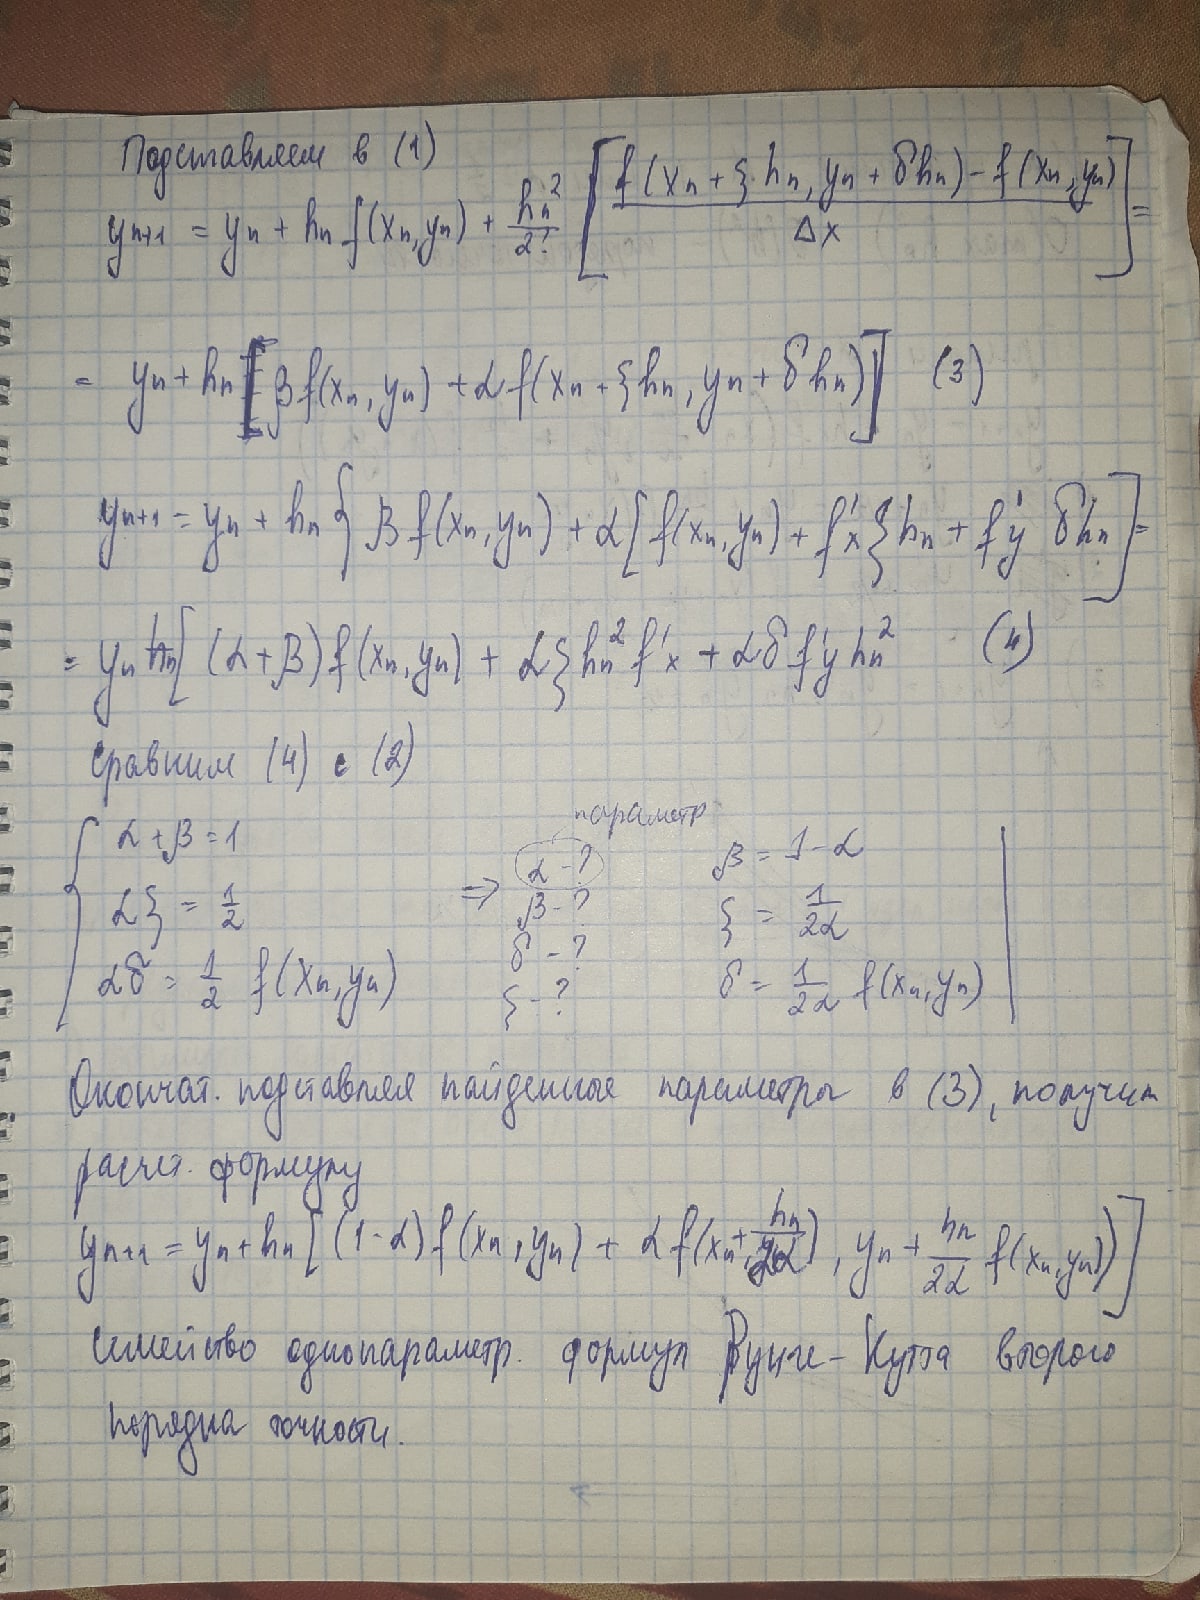 Подставляем в (1)
yn+1 = yn + hn f(xn, yn) + hn²/2! [ (f(xn + ξ·hn, yn + δhn) - f(xn, yn)) / Δx ] =
= yn + hn [ βf(xn, yn) + αf(xn + ξhn, yn + δhn) ] (3)
yn+1 = yn + hn { βf(xn, yn) + α[ f(xn, yn) + f'x ξhn + f'y δhn ] =
= yn hn [ (α+β) f(xn, yn) + αξhn² f'x + αδ f'y hn² (4)
Сравним (4) с (2)
параметр
{ α + β = 1 α - ? β = 1 - α
αξ = 1/2 ⇒ β - ? ξ = 1/2α
αδ = 1/2 f(xn, yn) δ - ? δ = 1/2α f(xn, yn)
ξ - ?
Окончат. подставляя найденные параметры в (3), получим
расчет. формулу
yn+1 = yn + hn [ (1-α) f(xn, yn) + αf(xn + hn/2α), yn + hn/2α f(xn, yn)) ]
семейство однопараметр. формул Рунге-Кутта второго
порядка точности.